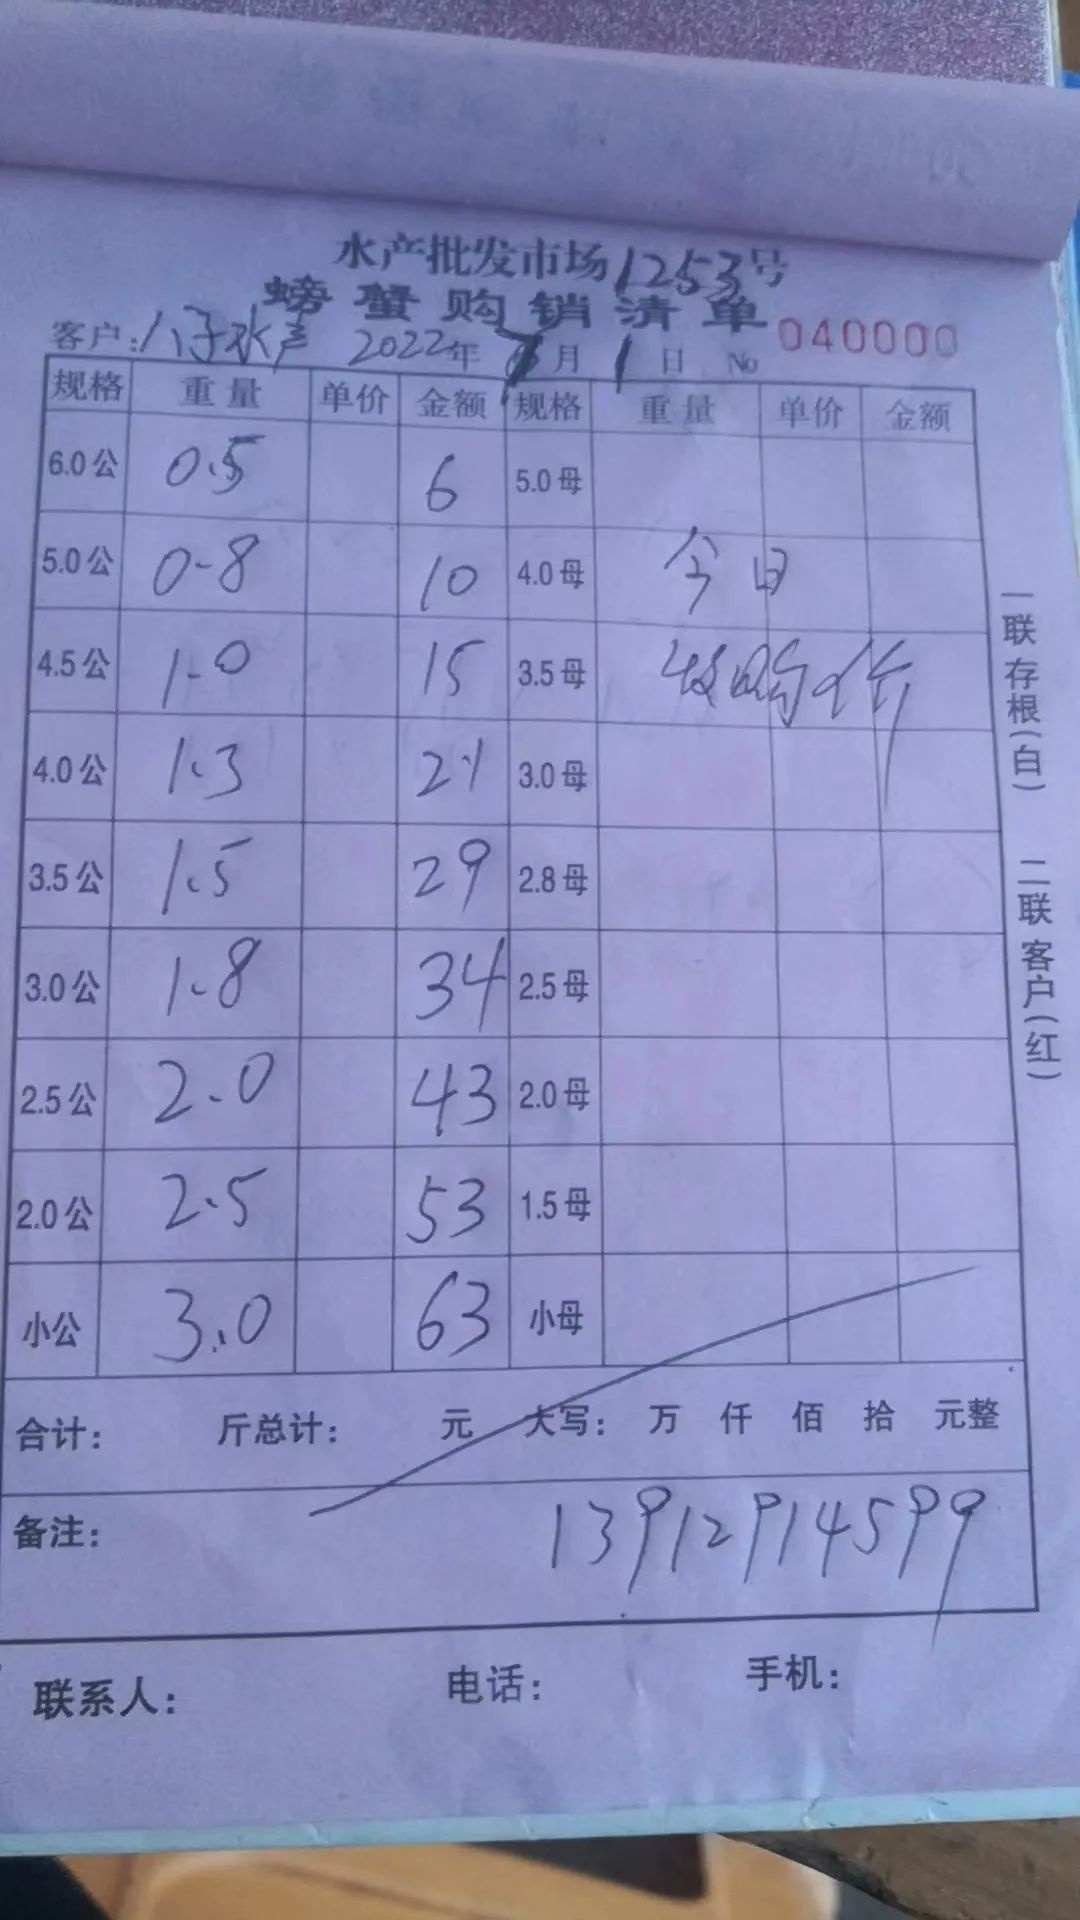 水产批发市场1253号
螃蟹购销清单
客户:八子水产 2022年 7月 1日 No 040000
规格 重量 单价 金额 规格 重量 单价 金额
6.0公 0.5 6 5.0母
5.0公 0-8 10 4.0母 今日
4.5公 1-0 15 3.5母 收购价
4.0公 1.3 21 3.0母
3.5公 1.5 29 2.8母
3.0公 1.8 34 2.5母
2.5公 2.0 43 2.0母
2.0公 2.5 53 1.5母
小公 3.0 63 小母
合计: 斤总计: 元 大写: 万 仟 佰 拾 元整
备注: 13912914599
联系人: 电话: 手机:
一联存根(白) 二联客户(红)